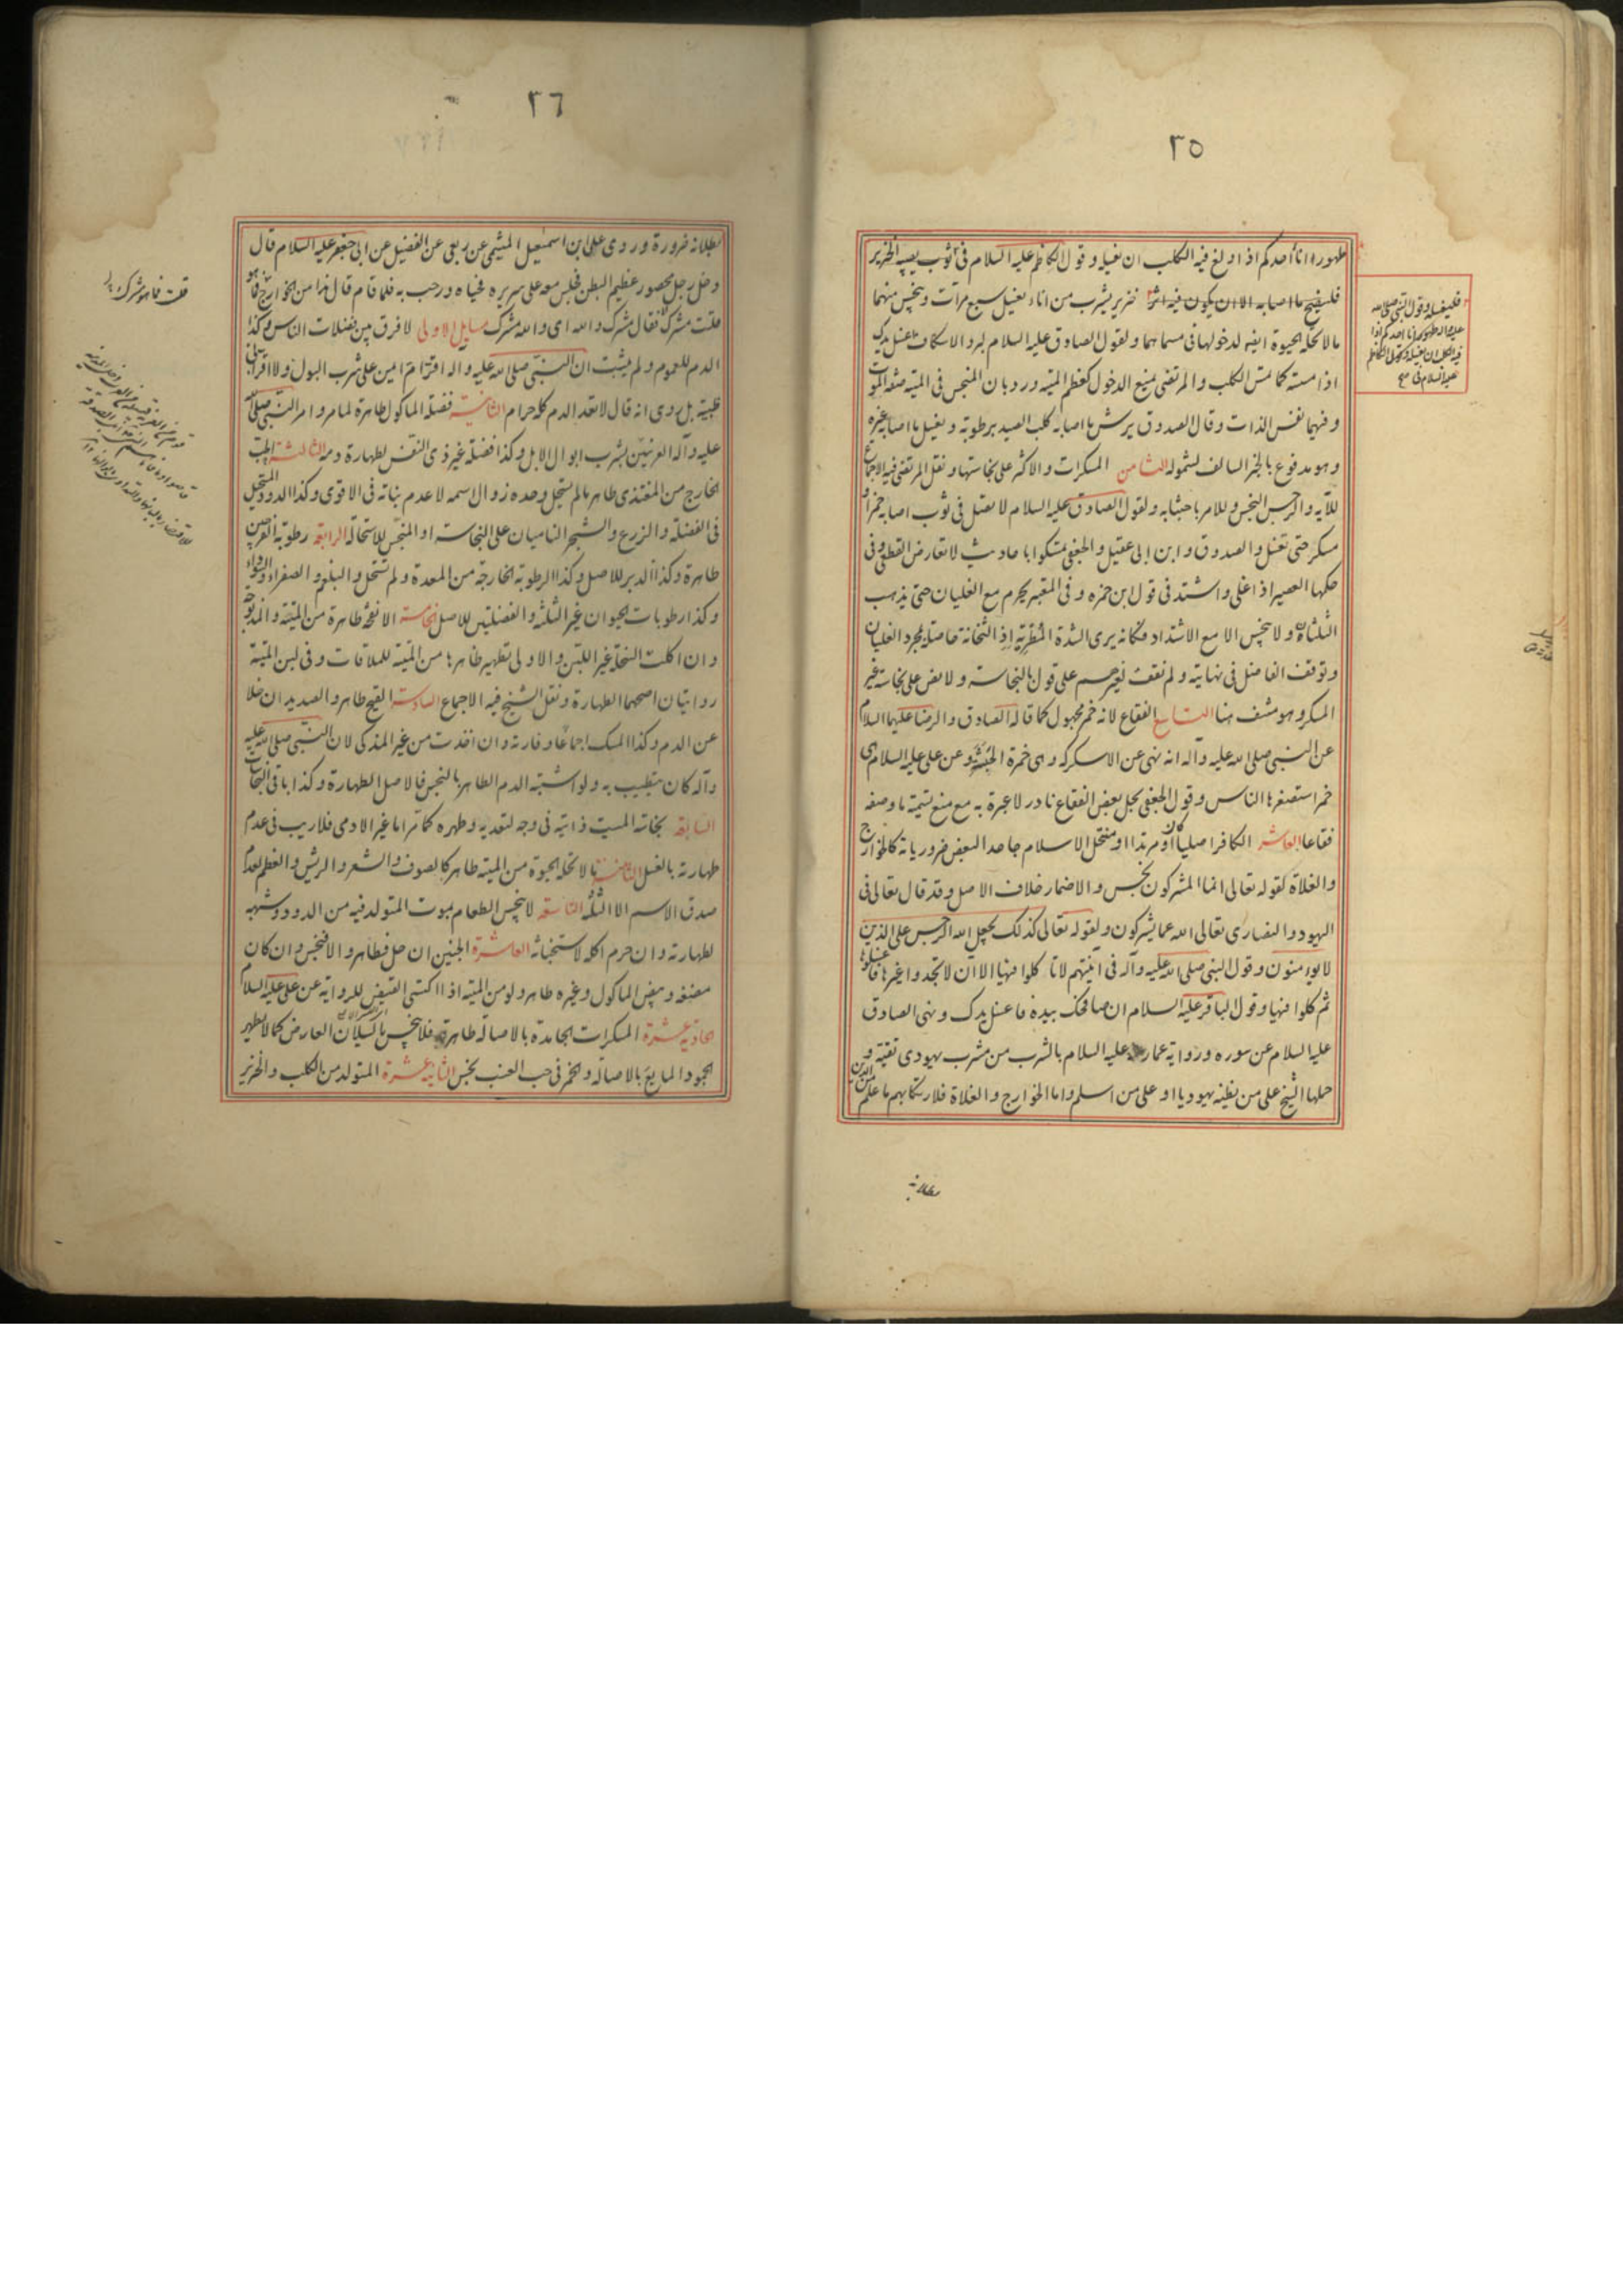 ٣٥
طهور اناء أحدكم اذا ولغ فيه الكلب ان يغسله وقول الكاظم عليه السلام فى ثوب يصيبه الخنزير
فلينضح ما اصابه الا ان يكون فيه اثر خنزير يشرب من اناء يغسل سبع مرات وينجس منهما
ما لا تحله الحيوة ايضا لدخولها فى مسماهما ولقول الصادق عليه السلام لبرد الاسكاف غسل يدك
اذا مسسته كما تمس الكلب والمرتضى يمنع الدخول كعظم الميتة ورد بان المنجس فى الميتة صفة الموت
وفيهما نفس الذات وقال الصدوق يرش ما اصابه كلب الصيد برطوبة ويغسل ما اصابه غيره
وهو مدفوع بالخبر السالف لشموله الثامن المسكرات والاكثر على نجاستها ونقل المرتضى فيه الاجماع
للآية والرجس النجس وللامر باجتنابه ولقول الصادق عليه السلام لا تصل فى ثوب اصابه خمر او
مسكر حتى تغسل والصدوق وابن ابى عقيل والجعفى تمسكوا باحاديث لا تعارض القطعى وفى
حكمها العصير اذا غلى واشتد فى قول ابن حمزه وفى المعتبر يحرم مع الغليان حتى يذهب
الثلثان ولا ينجس الا مع الاشتداد فكانه يرى الشدة المطربة اذ الثخانة حاصلة بمجرد الغليان
وتوقف الفاضل فى نهايته ولم نقف لغيرهم على قول بالنجاسة ولا نص على نجاسة غير
المسكر وهو منتف هنا التاسع الفقاع لانه خمر مجهول كما قاله الصادق والرضا عليهما السلام
عن النبى صلى الله عليه وآله انه نهى عن الاسكركه وهى خمرة الحبشة وعن على عليه السلام هى
خمر استصغرها الناس وقول الجعفى بحل بعض الفقاع نادر لا عبرة به مع منع تسمية ما وصفه
فقاعا العاشر الكافر اصليا كان او مرتدا او منتحل الاسلام جاحدا لبعض ضرورياته كالخوارج
والغلاة لقوله تعالى انما المشركون نجس والاضمار خلاف الاصل وقد قال تعالى فى
اليهود والنصارى تعالى الله عما يشركون ولقوله تعالى كذلك يجعل الله الرجس على الذين
لا يؤمنون وقول النبى صلى الله عليه وآله فى آنيتهم لا تاكلوا فيها الا ان لا تجدوا غيرها فاغسلوها
ثم كلوا فيها وقول الباقر عليه السلام ان صافحك بيده فاغسل يدك ونهى الصادق
عليه السلام عن سوره ورواية عمار عنه عليه السلام بالشرب من مشرب يهودى تقية
حملها الشيخ على من يظنه يهوديا او على من اسلم واما الخوارج والغلاة فلارتكابهم ما علم من الدين
بطلانه
فليغسله وقول النبى صلى الله
عليه وآله طهور اناء احدكم اذا
ولغ فيه الكلب ان يغسله وقول الكاظم
عليه السلام فى صح
٣٦
بطلانه ضرورة وروى على ابن اسمعيل الميثمى عن ربعى عن الفضيل عن ابى جعفر عليه السلام قال
دخل رجل محصور عظيم البطن فجلس معه على سريره فحياه ورحب به فلما قام قال هذا من الخوارج فما هو
قلت مشرك فقال مشرك والله اى والله مشرك مسايل الاولى لا فرق بين فضلات الناس وكذا
الدم للعموم ولم يثبت ان النبى صلى الله عليه وآله اقر ام ايمن على شرب البول ولا اقر ابى
طيبة بل روى انه قال لا تعد الدم كله حرام الثانية فضلة الماكول طاهرة لما مر وامر النبى صلى الله
عليه وآله العرنيين بشرب ابوال الابل وكذا فضلة غير ذى النفس لطهارة دمه الثالثة الحب
الخارج من المغتذى طاهر ما لم يستحل وحده زوال اسمه لا عدم نباته فى الاقوى وكذا الدود المستحيل
فى الفضلة والزرع والشجر الناميان على النجاسة او المنجس للاستحالة الرابعة رطوبة الفرجين
طاهرة وكذا الدبر للاصل وكذا الرطوبة الخارجة من المعدة ولم تستحل والبلغم والصفراء والسوداء
وكذا رطوبات الحيوان غير الثلثة والفضلتين للاصل الخامسة الانفحة طاهرة من الميتة والمذبوحة
وان اكلت السخلة غير اللبن والاولى تطهير ظاهرها من الميتة للملاقات وفى لبن الميتة
روايتان اصحهما الطهارة ونقل الشيخ فيه الاجماع السادسة القيح طاهر والصديد ان خلا
عن الدم وكذا المسك اجماعا وفارته وان اخذت من غير المذكى لان النبى صلى الله عليه
وآله كان يتطيب به ولو اشتبه الدم الطاهر بالنجس فالاصل الطهارة وكذا باقى النجاسات
السابعة نجاسة الميت ذاتية فى وجه لتعديه وطهره كما مر اما غير الادمى فلا ريب فى عدم
طهارته بالغسل الثامنة ما لا تحله الحيوة من الميتة طاهر كالصوف والشعر والريش والعظم لعدم
صدق الاسم الا الثلثة التاسعة لا ينجس الطعام بموت المتولد فيه من الدود وشبهه
لطهارته وان حرم اكله لاستخباثه العاشرة الجنين ان حل فطاهر والا فنجس وان كان
مضغة وبيض الماكول وغيره طاهر ولو من الميتة اذا اكتسى القيض للرواية عن على عليه السلام
الحادية عشرة المسكرات الجامدة بالاصالة طاهرة فلا ينجس بالسيلان العارض كما لا يطهر
الجمود المايع بالاصالة والخمر فى حب العنب نجس الثانية عشرة المتولد من الكلب والخنزير
قلت فما هو مشرك